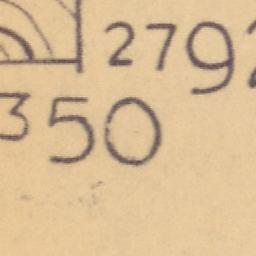 2792
350